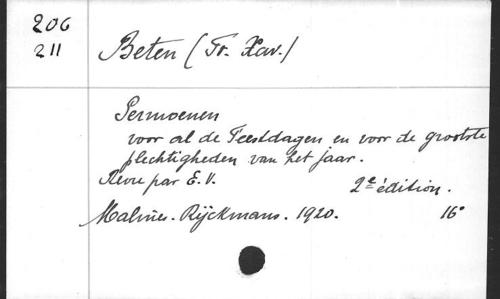 206
211
Beten (Fr. Xav.)
Sermoenen
voor al de Feestdagen en voor de grootste
plechtigheden van het jaar.
Revu par E. V.
2e édition.
Malines. Rÿckmans. 1920. 16°